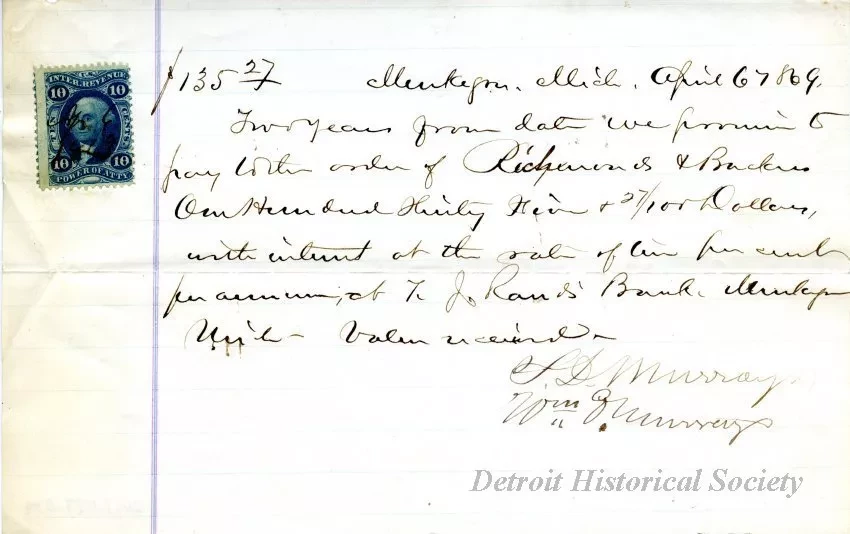 INTER. REVENUE
10 10
CENTS
10 10
POWER OF ATTY.
$135 27/ Muskegon, Mich, April 6 1869.
Two years from date we promise to
pay to the order of Richmonds & Backus
One Hundred Thirty Five & 27/100 Dollars,
with interest at the rate of ten per cent
per annum, at T. J. Rands Bank, Muskegon
Mich - Value received -
S. D. Murray
Wm J Murray
Detroit Historical Society